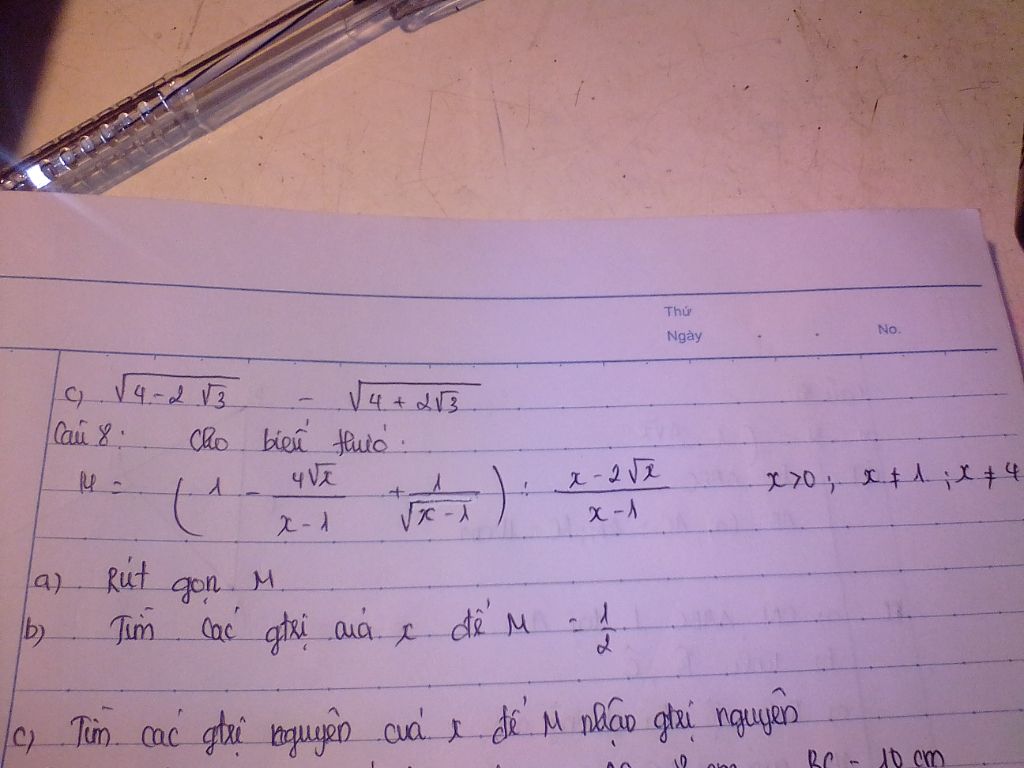 Thứ
Ngày . . No.
c) √(4 - 2√3) - √(4 + 2√3)
Câu 8: Cho biểu thức:
M = (1 - 4√x/(x - 1) + 1/√(x - 1)) : (x - 2√x)/(x - 1) x > 0; x ≠ 1; x ≠ 4
a) Rút gọn M
b) Tìm các gtrị của x để M = 1/2
c) Tìm các gtrị nguyên của x để M nhận gtrị nguyên
BC = 10 cm